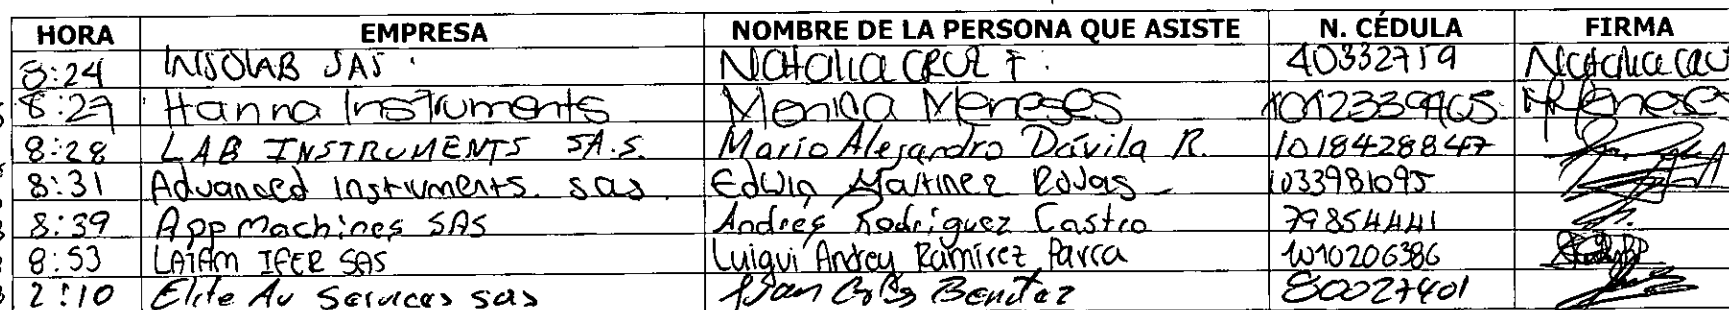 HORA EMPRESA NOMBRE DE LA PERSONA QUE ASISTE N. CÉDULA FIRMA
8:24 INSOLAB SAS. Natalia CRUZ F. 40332719 Natalia CRUZ
8:27 Hanna Instruments Monica Meneses 1012339965 Meneses
8:28 LAB INSTRUMENTS SA.S. Mario Alejandro Dávila R. 1018428847
8:31 Advanced Instruments. sas. Edwin Martinez Rojas 1033981095
8:39 App Machines SAS Andres Rodriguez Castro 79854441
8:53 LATAM IFER SAS Luigui Andrey Ramirez Parra 1010206386
2:10 Elite Av Services sas Benitez 80027401